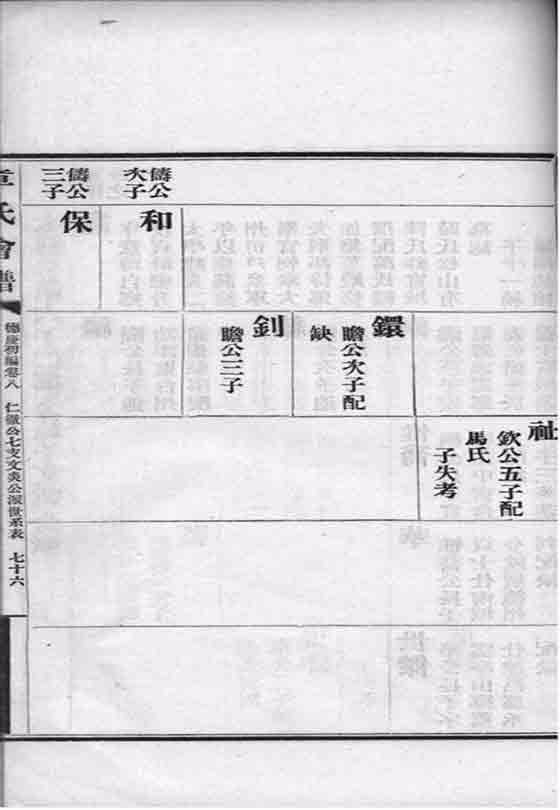 儔公
次子
儔公
三子
和
保
鐶
瞻公次子配
缺
釗
瞻公三子
祉
欽公五子配
馬氏
子失考
章氏會譜
德慶初編卷八
仁徹公七支文炎公派世系表
七十六